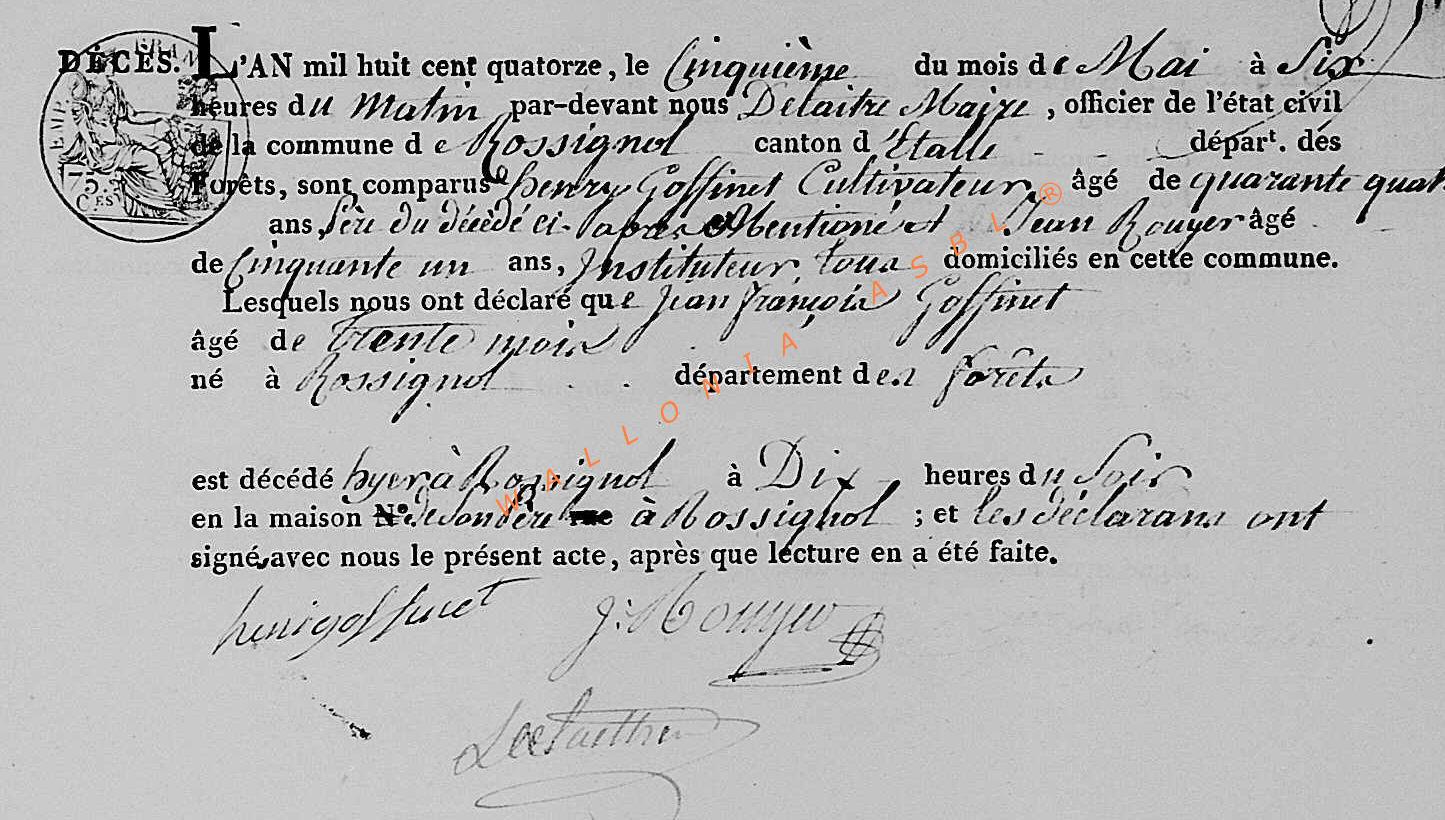 DÉCÈS. L'AN mil huit cent quatorze, le Cinquième du mois de Mai à Six
heures du Matin par-devant nous Delaitre Maire, officier de l'état civil
de la commune de Rossignol canton d'Etalle départ. des
Forêts, sont comparus henry Goffinet Cultivateur âgé de quarante quatre
ans, père du décédé ci-après Mentioné et Jean Rouyer âgé
de Cinquante un ans, Instituteur tous domiciliés en cette commune.
Lesquels nous ont déclaré que jean françois Goffinet
âgé de trente mois
né à Rossignol département des forêts
est décédé hyer à Rossignol à Dix heures du Soir
en la maison N.° de son père rue à Rossignol ; et les déclarans ont
signés avec nous le présent acte, après que lecture en a été faite.
henri goffinet J: Rouyer
EMP. FRAN.
75.
C.ES
WALLONIA ASBL ®